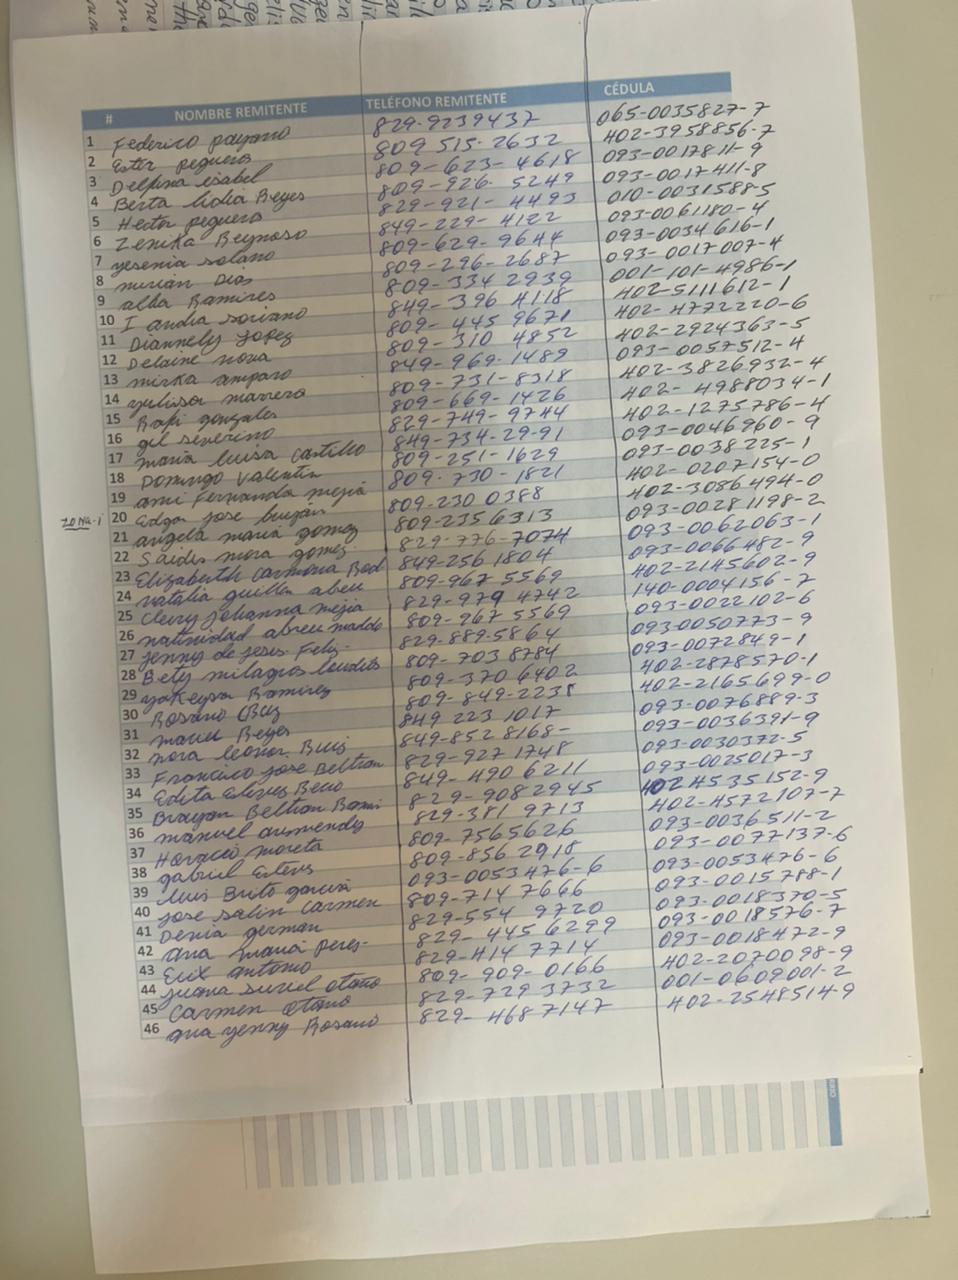 # NOMBRE REMITENTE TELÉFONO REMITENTE CÉDULA
1 Federico payano 829-9239437 065-0035827-7
2 Ester peguero 809 515-2632 402-3958856-7
3 Delfina isabel 809-623-4618 093-0017811-9
4 Berta lidia Reyes 809-926-5249 093-0017411-8
5 Hector peguero 829-921-4493 010-0031588-5
6 Zenika Reynoso 849-229-4122 093-0061180-4
7 yesenia solano 809-629-9644 093-0034616-1
8 mirian Dias 809-296-2687 093-0017007-4
9 alba Ramires 809-334 2939 001-101-4986-1
10 I andia soriano 849-396 4118 402-5111612-1
11 Diannely Lopez 809-445 9671 402-4772220-6
12 Delaine nova 809-310 4852 402-2924363-5
13 mirka amparo 849-969-1489 093-0057512-4
14 yulissa marrero 809-731-8318 402-3826932-4
15 Rafi gonzales 809-669-1426 402-4988034-1
16 gil severino 829-749-9744 402-1275786-4
17 maria luisa Castillo 849-734-29-91 093-0046960-9
18 Domingo Valentin 809-251-1629 093-0038225-1
19 ami Fernanda mejia 809-730-1821 402-0207154-0
ZONA-1 20 Edgar jose 809-230 0388 402-3086494-0
21 angela maria gomez 809-2356313 093-0028 1198-2
22 Saides mora gomez 829-776-7074 093-0062063-1
23 Elizaberth Carmona Rod 849-256 1804 093-0066482-9
24 natalia guillen abreu 809-967 5569 402-2145602-9
25 Cleiry johanna mejia 829-979 4742 140-0004156-7
26 natividad abreu 809-967 5569 093-0022102-6
27 jenny de jesus Feliz- 829-889-5864 093-0050773-9
28 Bety milagros 809-703 8784 093-0072849-1
29 yokeysa Ramirez 809-370 6402 402-2878570-1
30 Rosario Cruz 809-849-2238 402-2165699-0
31 manuel Reyes 849 223 1017 093-0076889-3
32 nora leonor Ruis 849-852 8168- 093-0036391-9
33 Francisco jose Beltran 829-927 1748 093-0030372-5
34 Edita Esteves 849-490 6211 093-0025017-3
35 Brayan Beltran 829-9082945 402 4535152-9
36 manuel 829-381 9713 402-4572107-7
37 Horacio moreta 809-7565626 093-0036511-2
38 gabriel Esteves 809-856 2918 093-0077137-6
39 luis Brito garcia 093-0053476-6 093-0053476-6
40 jose salin Carmen 809-714 7666 093-0015788-1
41 Denia german 829-554 9720 093-0018370-5
42 ana maria peres- 829-445 6299 093-0018576-7
43 Erix antonio 829-414 7714 093-0018472-9
44 juana otaño 809-909-0166 402-2070098-9
45 Carmen otaño 829-729 3732 001-0609001-2
46 ana yenny Rosario 829-4687147 402-2548514-9